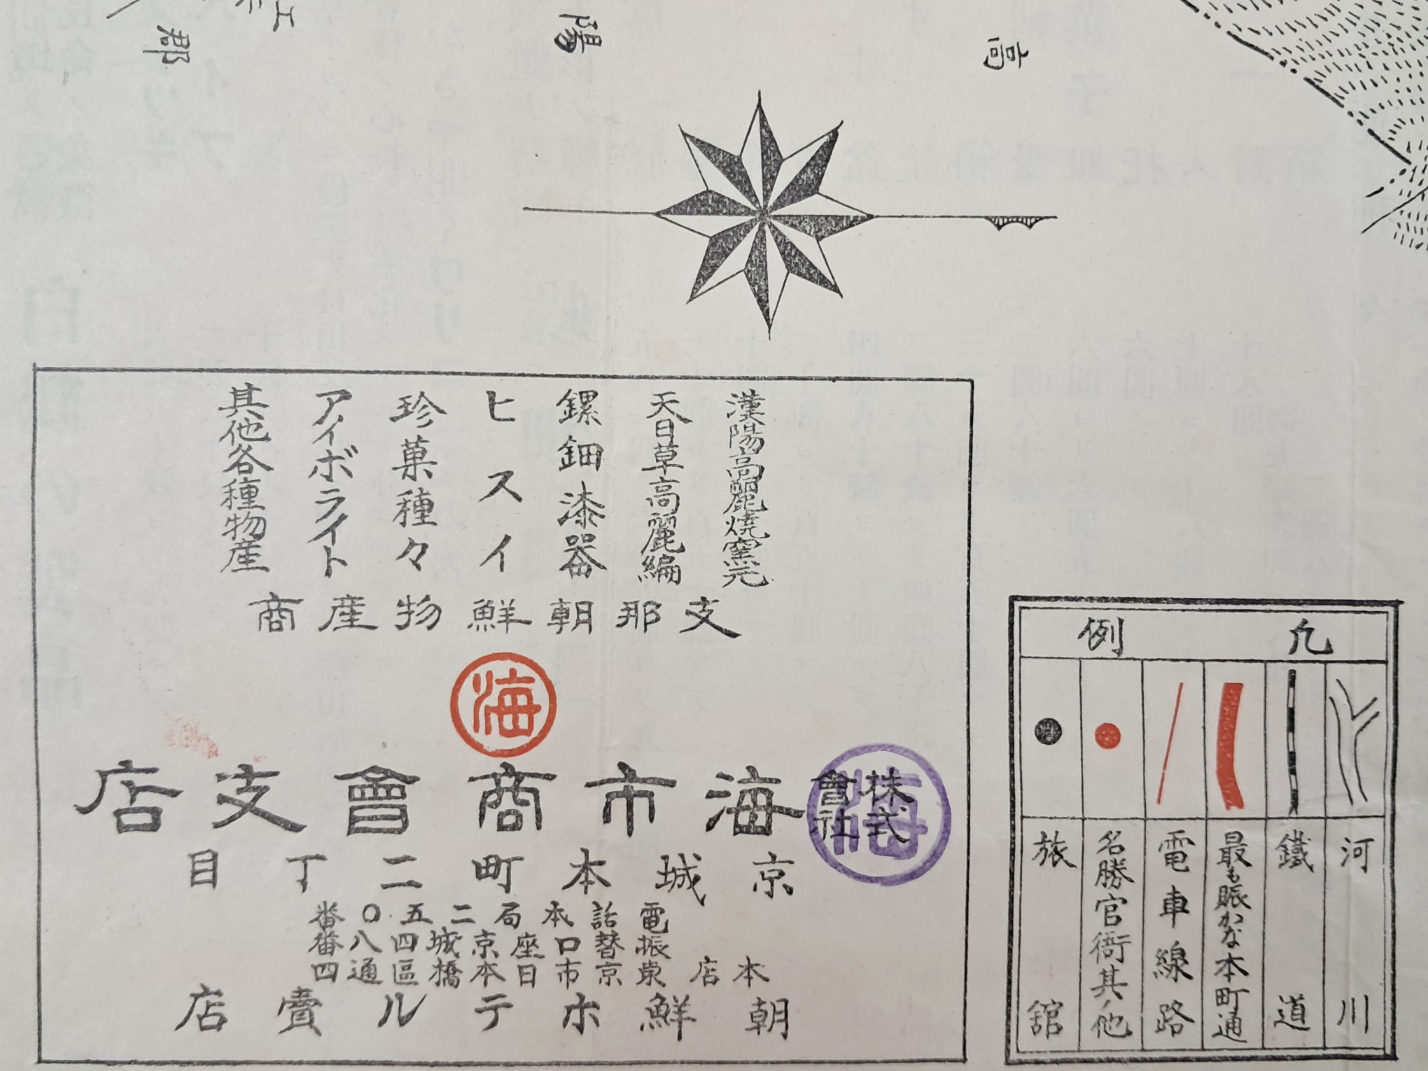 陽
高
漢陽高麗焼窯元
天日草高麗編
螺鈿漆器
ヒスイ
珍菓種々
アイボライト
其他各種物産
支那朝鮮物産商
海
株式會社
海市商會支店
海
京城本町二丁目
電話本局二五〇番
振替口座京城四八番
本店 東京市日本橋區通四
朝鮮ホテル賣店
凡例
河川
鐵道
最も賑かな本町通
電車線路
名勝官衙其ノ他
旅舘